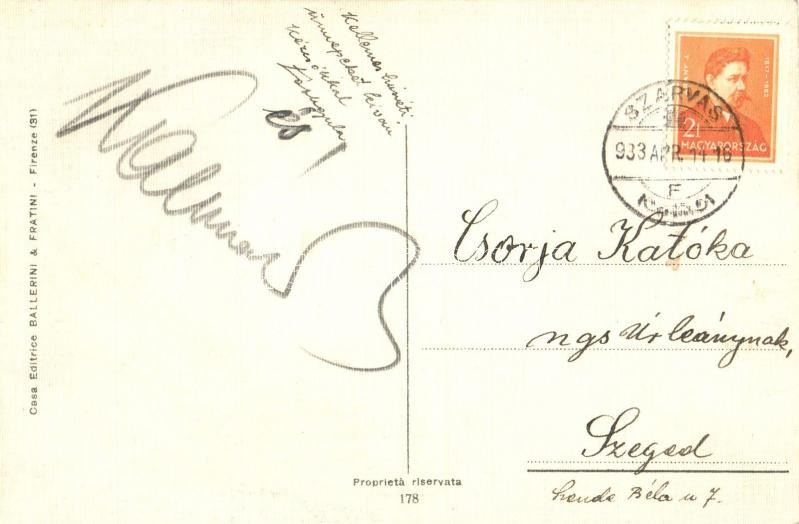 Kellemes húsvéti
ünnepeket kíván
Kézcsókkal
és
Kálmán
1817-1882
SZARVAS
21
MAGYARORSZÁG
933 APR. 14 16
F
Csorja Katóka
ngs Úrleánynak,
Szeged
Lende Béla u 7.
Casa Editrice BALLERINI & FRATINI - Firenze (31)
Proprietà riservata
178